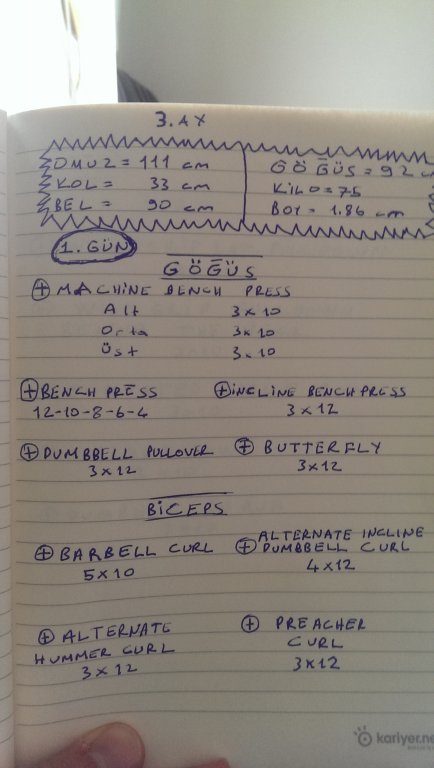 3. AY
OMUZ = 111 cm
KOL = 33 cm
BEL = 90 cm
GÖĞÜS = 92 c
KİLO = 75
BOY = 1.86 cm
1. GÜN
GÖĞÜS
+ MACHINE BENCH PRESS
Alt 3x10
Orta 3x10
Üst 3x10
+ BENCH PRESS
12-10-8-6-4
+ INCLINE BENCH PRESS
3x12
+ DUMBBELL PULLOVER
3x12
+ BUTTERFLY
3x12
BİCEPS
+ BARBELL CURL
5x10
+ ALTERNATE INCLINE
DUMBBELL CURL
4x12
+ ALTERNATE
HUMMER CURL
3x12
+ PREACHER
CURL
3x12
kariyer.ne